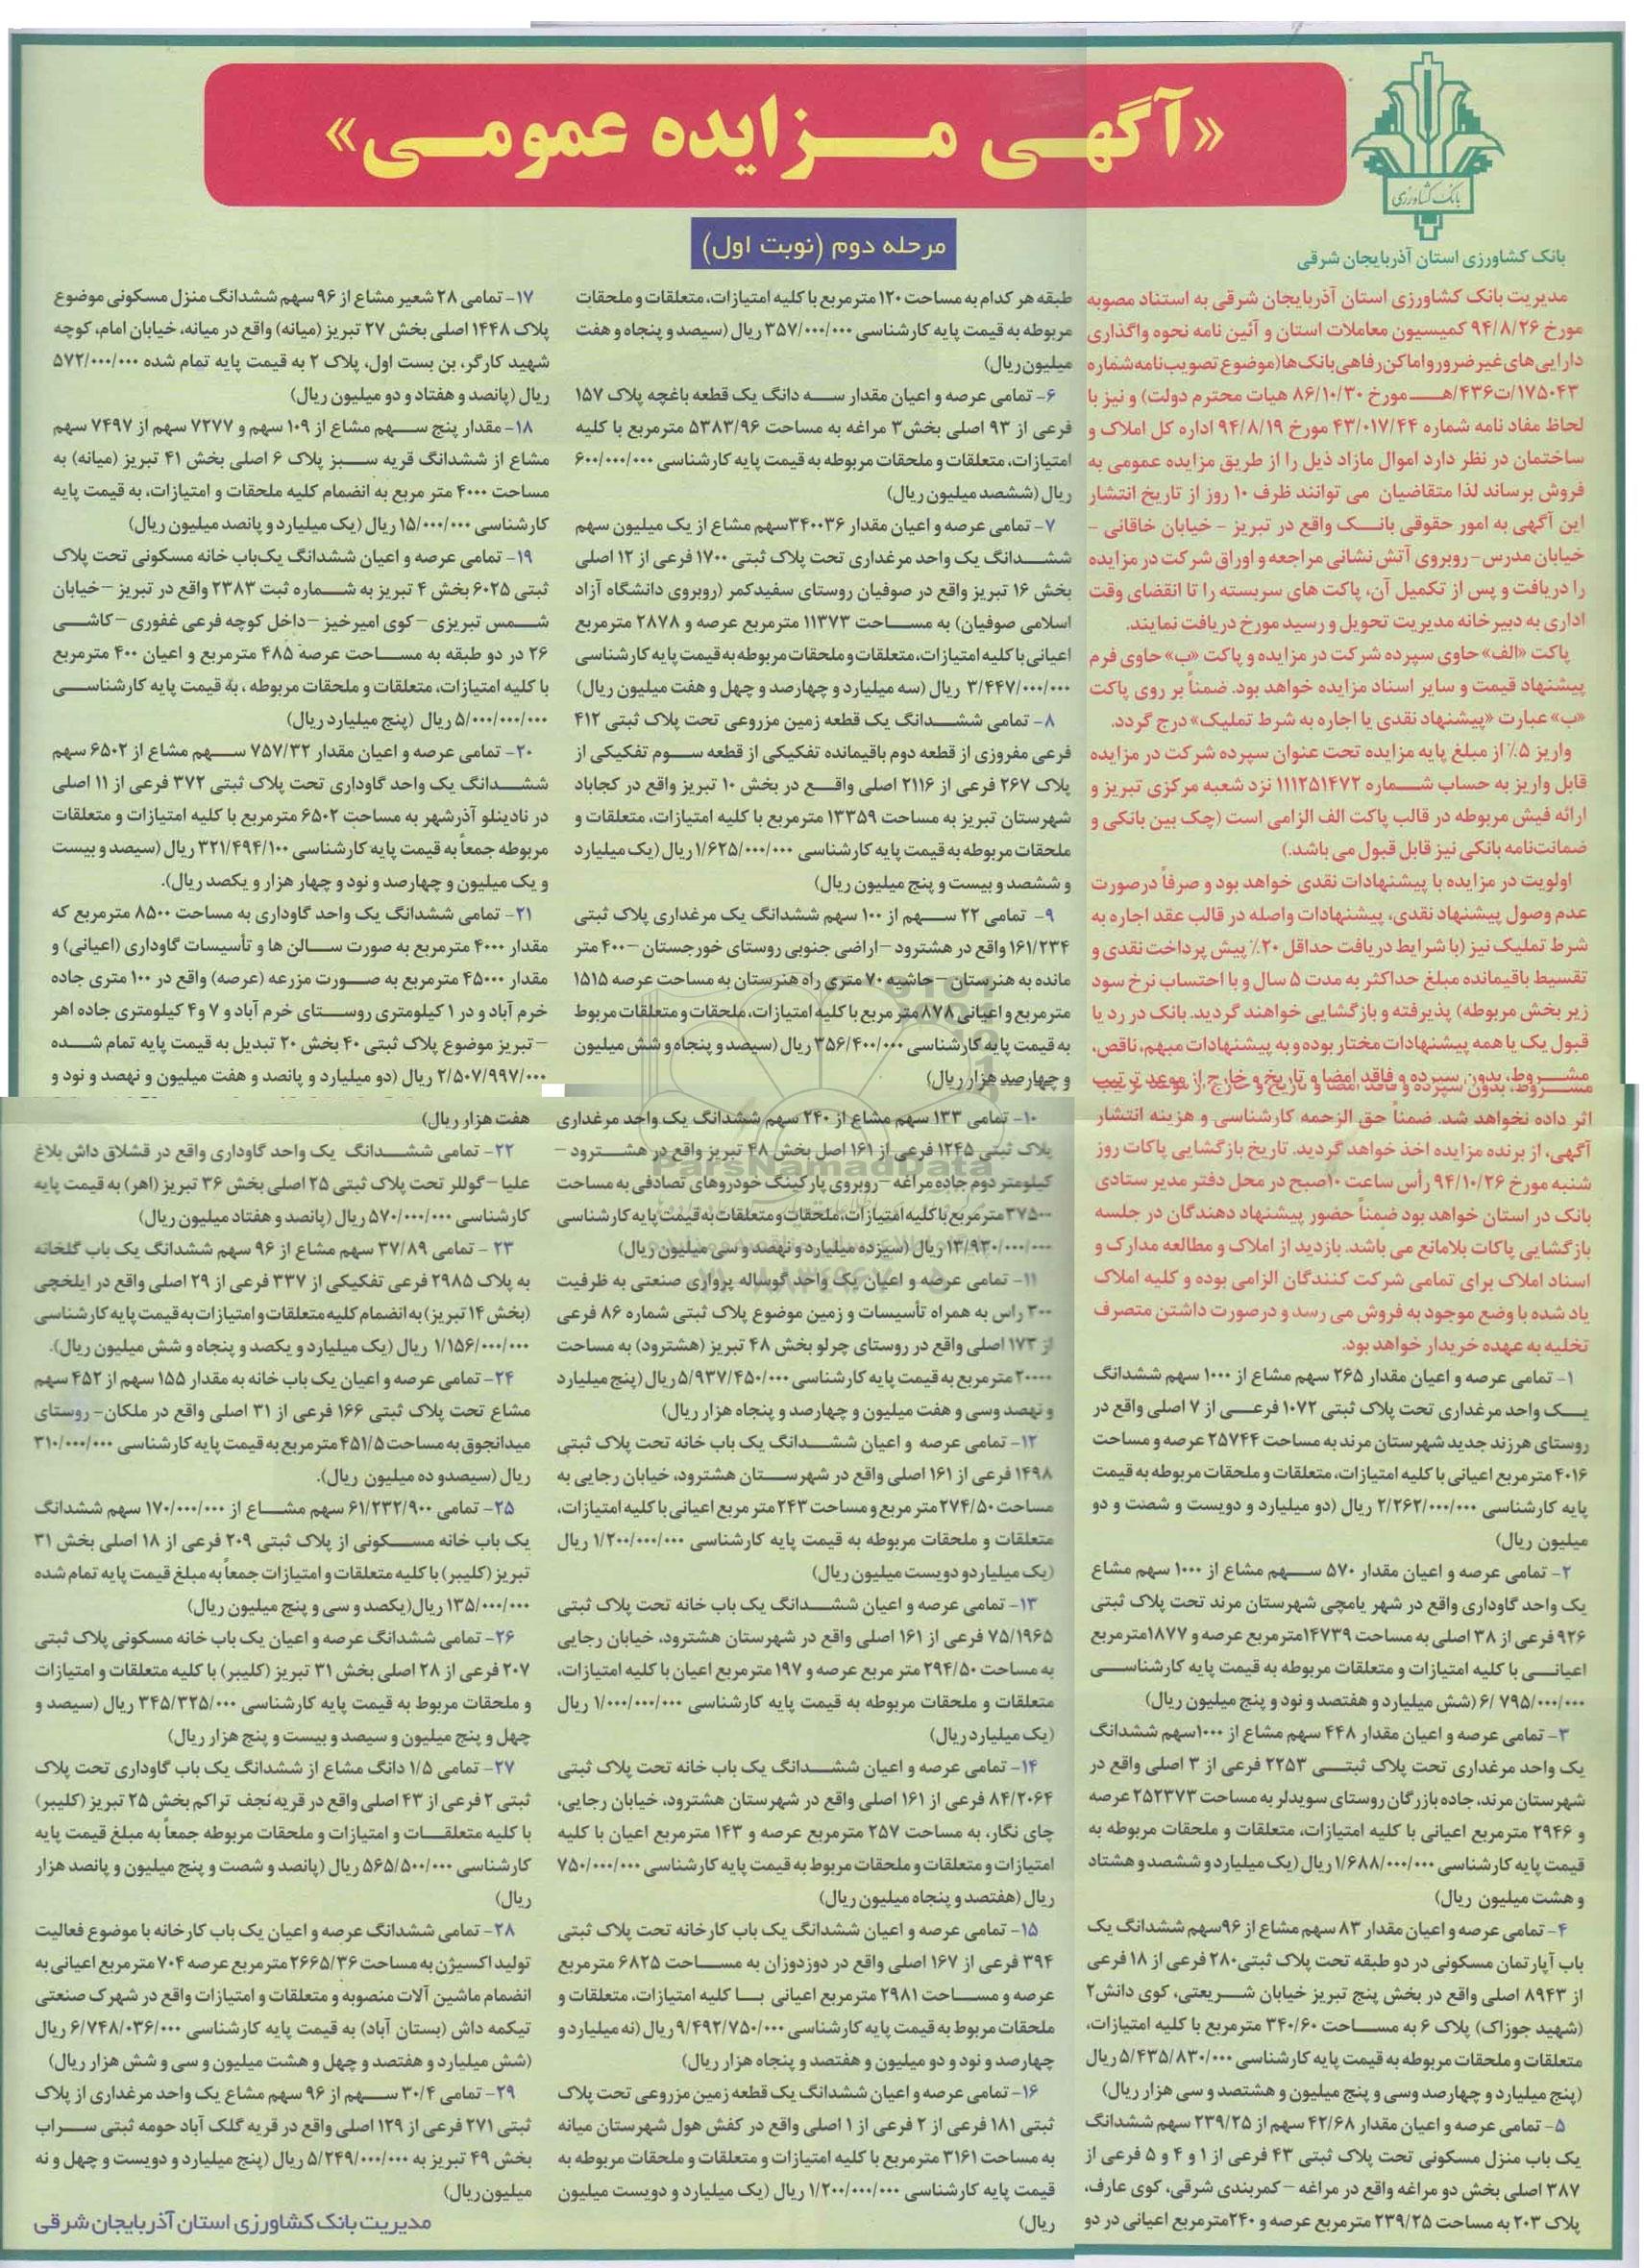 «آگهی مزایده عمومی»
بانک کشاورزی
مرحله دوم (نوبت اول)
بانک کشاورزی استان آذربایجان شرقی
مدیریت بانک کشاورزی استان آذربایجان شرقی به استناد مصوبه
مورخ ۹۴/۸/۲۶ کمیسیون معاملات استان و آئین نامه نحوه واگذاری
دارایی‌های غیرضرور و اماکن رفاهی بانک‌ها (موضوع تصویب نامه شماره
۱۷۵۰۴۳/ت۴۳۶/هـ مورخ ۸۶/۱۰/۳۰ هیات محترم دولت) و نیز با
لحاظ مفاد نامه شماره ۴۳/۰۱۷/۴۴ مورخ ۹۴/۸/۱۹ اداره کل املاک و
ساختمان در نظر دارد اموال مازاد ذیل را از طریق مزایده عمومی به
فروش برساند لذا متقاضیان می توانند ظرف ۱۰ روز از تاریخ انتشار
این آگهی به امور حقوقی بانک واقع در تبریز - خیابان خاقانی -
خیابان مدرس - روبروی آتش نشانی مراجعه و اوراق شرکت در مزایده
را دریافت و پس از تکمیل آن، پاکت های سربسته را تا انقضای وقت
اداری به دبیرخانه مدیریت تحویل و رسید مورخ دریافت نمایند.
پاکت «الف» حاوی سپرده شرکت در مزایده و پاکت «ب» حاوی فرم
پیشنهاد قیمت و سایر اسناد مزایده خواهد بود. ضمناً بر روی پاکت
«ب» عبارت «پیشنهاد نقدی یا اجاره به شرط تملیک» درج گردد.
واریز ۵٪ از مبلغ پایه مزایده تحت عنوان سپرده شرکت در مزایده
قابل واریز به حساب شماره ۱۱۱۲۵۱۴۷۲ نزد شعبه مرکزی تبریز و
ارائه فیش مربوطه در قالب پاکت الف الزامی است (چک بین بانکی و
ضمانت‌نامه بانکی نیز قابل قبول می باشد.)
اولویت در مزایده با پیشنهادات نقدی خواهد بود و صرفاً درصورت
عدم وصول پیشنهاد نقدی، پیشنهادات واصله در قالب عقد اجاره به
شرط تملیک نیز (با شرایط دریافت حداقل ۲۰٪ پیش پرداخت نقدی و
تقسیط باقیمانده مبلغ حداکثر به مدت ۵ سال و با احتساب نرخ سود
زیر بخش مربوطه) پذیرفته و بازگشایی خواهند گردید. بانک در رد یا
قبول یک یا همه پیشنهادات مختار بوده و به پیشنهادات مبهم، ناقص،
مشروط، بدون سپرده و فاقد امضا و تاریخ و خارج از موعد ترتیب
اثر داده نخواهد شد. ضمناً حق الزحمه کارشناسی و هزینه انتشار
آگهی، از برنده مزایده اخذ خواهد گردید. تاریخ بازگشایی پاکات روز
شنبه مورخ ۹۴/۱۰/۲۶ رأس ساعت ۱۰صبح در محل دفتر مدیر ستادی
بانک در استان خواهد بود ضمناً حضور پیشنهاد دهندگان در جلسه
بازگشایی پاکات بلامانع می باشد. بازدید از املاک و مطالعه مدارک و
اسناد املاک برای تمامی شرکت کنندگان الزامی بوده و کلیه املاک
یاد شده با وضع موجود به فروش می رسد و درصورت داشتن متصرف
تخلیه به عهده خریدار خواهد بود.
۱- تمامی عرصه و اعیان مقدار ۲۶۵ سهم مشاع از ۱۰۰۰ سهم ششدانگ
یک واحد مرغداری تحت پلاک ثبتی ۱۰۷۲ فرعی از ۷ اصلی واقع در
روستای هرزند جدید شهرستان مرند به مساحت ۲۵۷۴۴ عرصه و مساحت
۴۰۱۶ مترمربع اعیانی با کلیه امتیازات، متعلقات و ملحقات مربوطه به قیمت
پایه کارشناسی ۲/۲۶۲/۰۰۰/۰۰۰ ریال (دو میلیارد و دویست و شصت و دو
میلیون ریال)
۲- تمامی عرصه و اعیان مقدار ۵۷۰ سهم مشاع از ۱۰۰۰ سهم مشاع
یک واحد گاوداری واقع در شهر یامچی شهرستان مرند تحت پلاک ثبتی
۹۲۶ فرعی از ۳۸ اصلی به مساحت ۱۴۷۳۹مترمربع عرصه و ۱۸۷۷مترمربع
اعیانی با کلیه امتیازات و متعلقات مربوطه به قیمت پایه کارشناسی
۶/ ۷۹۵/۰۰۰/۰۰۰ (شش میلیارد و هفتصد و نود و پنج میلیون ریال)
۳- تمامی عرصه و اعیان مقدار ۴۴۸ سهم مشاع از ۱۰۰۰سهم ششدانگ
یک واحد مرغداری تحت پلاک ثبتی ۲۲۵۳ فرعی از ۳ اصلی واقع در
شهرستان مرند، جاده بازرگان روستای سویدلر به مساحت ۲۵۲۳۷۳ عرصه
و ۲۹۴۶ مترمربع اعیانی با کلیه امتیازات، متعلقات و ملحقات مربوطه به
قیمت پایه کارشناسی ۱/۶۸۸/۰۰۰/۰۰۰ ریال (یک میلیارد و ششصد و هشتاد
و هشت میلیون ریال)
۴- تمامی عرصه و اعیان مقدار ۸۳ سهم مشاع از ۹۶سهم ششدانگ یک
باب آپارتمان مسکونی در دو طبقه تحت پلاک ثبتی ۲۸۰ فرعی از ۱۸ فرعی
از ۸۹۴۳ اصلی واقع در بخش پنج تبریز خیابان شریعتی، کوی دانش۲
(شهید جوزاک) پلاک ۶ به مساحت ۳۴۰/۶۰ مترمربع با کلیه امتیازات،
متعلقات و ملحقات مربوطه به قیمت پایه کارشناسی ۵/۴۳۵/۸۳۰/۰۰۰ ریال
(پنج میلیارد و چهارصد وسی و پنج میلیون و هشتصد و سی هزار ریال)
۵- تمامی عرصه و اعیان مقدار ۴۲/۶۸ سهم از ۲۳۹/۲۵ سهم ششدانگ
یک باب منزل مسکونی تحت پلاک ثبتی ۴۳ فرعی از ۱ و ۴ و ۵ فرعی از
۳۸۷ اصلی بخش دو مراغه واقع در مراغه - کمربندی شرقی، کوی عارف،
پلاک ۲۰۳ به مساحت ۲۳۹/۲۵ مترمربع عرصه و ۲۴۰مترمربع اعیانی در دو
طبقه هر کدام به مساحت ۱۲۰ مترمربع با کلیه امتیازات، متعلقات و ملحقات
مربوطه به قیمت پایه کارشناسی ۳۵۷/۰۰۰/۰۰۰ ریال (سیصد و پنجاه و هفت
میلیون ریال)
۶- تمامی عرصه و اعیان مقدار سه دانگ یک قطعه باغچه پلاک ۱۵۷
فرعی از ۹۳ اصلی بخش۳ مراغه به مساحت ۵۳۸۳/۹۶ مترمربع با کلیه
امتیازات، متعلقات و ملحقات مربوطه به قیمت پایه کارشناسی ۶۰۰/۰۰۰/۰۰۰
ریال (ششصد میلیون ریال)
۷- تمامی عرصه و اعیان مقدار ۳۴۰۰۳۶سهم مشاع از یک میلیون سهم
ششدانگ یک واحد مرغداری تحت پلاک ثبتی ۱۷۰۰ فرعی از ۱۲ اصلی
بخش ۱۶ تبریز واقع در صوفیان روستای سفیدکمر (روبروی دانشگاه آزاد
اسلامی صوفیان) به مساحت ۱۱۳۷۳ مترمربع عرصه و ۲۸۷۸ مترمربع
اعیانی با کلیه امتیازات، متعلقات و ملحقات مربوطه به قیمت پایه کارشناسی
۳/۴۴۷/۰۰۰/۰۰۰ ریال (سه میلیارد و چهارصد و چهل و هفت میلیون ریال)
۸- تمامی ششدانگ یک قطعه زمین مزروعی تحت پلاک ثبتی ۴۱۲
فرعی مفروزی از قطعه دوم باقیمانده تفکیکی از قطعه سوم تفکیکی از
پلاک ۲۶۷ فرعی از ۲۱۱۶ اصلی واقع در بخش ۱۰ تبریز واقع در کجاباد
شهرستان تبریز به مساحت ۱۳۳۵۹ مترمربع با کلیه امتیازات، متعلقات و
ملحقات مربوطه به قیمت پایه کارشناسی ۱/۶۲۵/۰۰۰/۰۰۰ ریال (یک میلیارد
و ششصد و بیست و پنج میلیون ریال)
۹- تمامی ۲۲ سهم از ۱۰۰ سهم ششدانگ یک مرغداری پلاک ثبتی
۱۶۱/۲۳۴ واقع در هشترود -اراضی جنوبی روستای خورجستان -۴۰۰ متر
مانده به هنرستان -حاشیه ۷۰ متری راه هنرستان به مساحت عرصه ۱۵۱۵
مترمربع و اعیانی ۸۷۸ متر مربع با کلیه امتیازات، ملحقات و متعلقات مربوط
به قیمت پایه کارشناسی ۳۵۶/۴۰۰/۰۰۰ ریال (سیصد و پنجاه و شش میلیون
و چهارصد هزار ریال)
۱۰- تمامی ۱۳۳ سهم مشاع از ۲۴۰ سهم ششدانگ یک واحد مرغداری
پلاک ثبتی ۱۲۴۵ فرعی از ۱۶۱ اصل بخش ۴۸ تبریز واقع در هشترود -
کیلومتر دوم جاده مراغه -روبروی پارکینگ خودروهای تصادفی به مساحت
۳۷۵۰۰مترمربع با کلیه امتیازات، ملحقات و متعلقات به قیمت پایه کارشناسی
۱۳/۹۳۰/۰۰۰/۰۰۰ ریال (سیزده میلیارد و نهصد و سی میلیون ریال)
۱۱- تمامی عرصه و اعیان یک واحد گوساله پرواری صنعتی به ظرفیت
۳۰۰ راس به همراه تأسیسات و زمین موضوع پلاک ثبتی شماره ۸۶ فرعی
از ۱۷۳ اصلی واقع در روستای چرلو بخش ۴۸ تبریز (هشترود) به مساحت
۲۰۰۰۰ مترمربع به قیمت پایه کارشناسی ۵/۹۳۷/۴۵۰/۰۰۰ ریال (پنج میلیارد
و نهصد وسی و هفت میلیون و چهارصد و پنجاه هزار ریال)
۱۲- تمامی عرصه و اعیان ششدانگ یک باب خانه تحت پلاک ثبتی
۱۴۹۸ فرعی از ۱۶۱ اصلی واقع در شهرستان هشترود، خیابان رجایی به
مساحت ۲۷۴/۵۰ متر مربع و مساحت ۲۴۳ متر مربع اعیانی با کلیه امتیازات،
متعلقات و ملحقات مربوطه به قیمت پایه کارشناسی ۱/۲۰۰/۰۰۰/۰۰۰ ریال
(یک میلیارد و دویست میلیون ریال)
۱۳- تمامی عرصه و اعیان ششدانگ یک باب خانه تحت پلاک ثبتی
۷۵/۱۹۶۵ فرعی از ۱۶۱ اصلی واقع در شهرستان هشترود، خیابان رجایی
به مساحت ۲۹۴/۵۰ متر مربع عرصه و ۱۹۷ مترمربع اعیان با کلیه امتیازات،
متعلقات و ملحقات مربوطه به قیمت پایه کارشناسی ۱/۰۰۰/۰۰۰/۰۰۰ ریال
(یک میلیارد ریال)
۱۴- تمامی عرصه و اعیان ششدانگ یک باب خانه تحت پلاک ثبتی
۸۴/۲۰۶۴ فرعی از ۱۶۱ اصلی واقع در شهرستان هشترود، خیابان رجایی،
چای نگار، به مساحت ۲۵۷ مترمربع عرصه و ۱۴۳ مترمربع اعیان با کلیه
امتیازات و متعلقات و ملحقات مربوط به قیمت پایه کارشناسی ۷۵۰/۰۰۰/۰۰۰
ریال (هفتصد و پنجاه میلیون ریال)
۱۵- تمامی عرصه و اعیان ششدانگ یک باب کارخانه تحت پلاک ثبتی
۳۹۴ فرعی از ۱۶۷ اصلی واقع در دوزدوزان به مساحت ۶۸۲۵ مترمربع
عرصه و مساحت ۲۹۸۱ مترمربع اعیانی با کلیه امتیازات، متعلقات و
ملحقات مربوط به قیمت پایه کارشناسی ۹/۴۹۲/۷۵۰/۰۰۰ ریال (نه میلیارد و
چهارصد و نود و دو میلیون و هفتصد و پنجاه هزار ریال)
۱۶- تمامی عرصه و اعیان ششدانگ یک قطعه زمین مزروعی تحت پلاک
ثبتی ۱۸۱ فرعی از ۲ فرعی از ۱ اصلی واقع در کفش هول شهرستان میانه
به مساحت ۳۱۶۱ مترمربع با کلیه امتیازات و متعلقات و ملحقات مربوطه به
قیمت پایه کارشناسی ۱/۲۰۰/۰۰۰/۰۰۰ ریال (یک میلیارد و دویست میلیون
ریال)
۱۷- تمامی ۲۸ شعیر مشاع از ۹۶ سهم ششدانگ منزل مسکونی موضوع
پلاک ۱۴۴۸ اصلی بخش ۲۷ تبریز (میانه) واقع در میانه، خیابان امام، کوچه
شهید کارگر، بن بست اول، پلاک ۲ به قیمت پایه تمام شده ۵۷۲/۰۰۰/۰۰۰
ریال (پانصد و هفتاد و دو میلیون ریال)
۱۸- مقدار پنج سهم مشاع از ۱۰۹ سهم و ۷۲۷۷ سهم از ۷۴۹۷ سهم
مشاع از ششدانگ قریه سبز پلاک ۶ اصلی بخش ۴۱ تبریز (میانه) به
مساحت ۴۰۰۰ متر مربع به انضمام کلیه ملحقات و امتیازات، به قیمت پایه
کارشناسی ۱۵/۰۰۰/۰۰۰ ریال (یک میلیارد و پانصد میلیون ریال)
۱۹- تمامی عرصه و اعیان ششدانگ یک‌باب خانه مسکونی تحت پلاک
ثبتی ۶۰۲۵ بخش ۴ تبریز به شماره ثبت ۲۳۸۳ واقع در تبریز -خیابان
شمس تبریزی -کوی امیرخیز -داخل کوچه فرعی غفوری -کاشی
۲۶ در دو طبقه به مساحت عرصه ۴۸۵ مترمربع و اعیان ۴۰۰ مترمربع
با کلیه امتیازات، متعلقات و ملحقات مربوطه ، به قیمت پایه کارشناسی
۵/۰۰۰/۰۰۰/۰۰۰ ریال (پنج میلیارد ریال)
۲۰- تمامی عرصه و اعیان مقدار ۷۵۷/۳۲ سهم مشاع از ۶۵۰۲ سهم
ششدانگ یک واحد گاوداری تحت پلاک ثبتی ۳۷۲ فرعی از ۱۱ اصلی
در نادینلو آذرشهر به مساحت ۶۵۰۲ مترمربع با کلیه امتیازات و متعلقات
مربوطه جمعاً به قیمت پایه کارشناسی ۳۲۱/۴۹۴/۱۰۰ ریال (سیصد و بیست
و یک میلیون و چهارصد و نود و چهار هزار و یکصد ریال).
۲۱- تمامی ششدانگ یک واحد گاوداری به مساحت ۸۵۰۰ مترمربع که
مقدار ۴۰۰۰ مترمربع به صورت سالن ها و تأسیسات گاوداری (اعیانی) و
مقدار ۴۵۰۰۰ مترمربع به صورت مزرعه (عرصه) واقع در ۱۰۰ متری جاده
خرم آباد و در ۱ کیلومتری روستای خرم آباد و ۷ و۴ کیلومتری جاده اهر
-تبریز موضوع پلاک ثبتی ۴۰ بخش ۲۰ تبدیل به قیمت پایه تمام شده
۲/۵۰۷/۹۹۷/۰۰۰ ریال (دو میلیارد و پانصد و هفت میلیون و نهصد و نود و
هفت هزار ریال)
۲۲- تمامی ششدانگ یک واحد گاوداری واقع در قشلاق داش بلاغ
علیا -گوللر تحت پلاک ثبتی ۲۵ اصلی بخش ۳۶ تبریز (اهر) به قیمت پایه
کارشناسی ۵۷۰/۰۰۰/۰۰۰ ریال (پانصد و هفتاد میلیون ریال)
۲۳ - تمامی ۳۷/۸۹ سهم مشاع از ۹۶ سهم ششدانگ یک باب گلخانه
به پلاک ۲۹۸۵ فرعی تفکیکی از ۳۳۷ فرعی از ۲۹ اصلی واقع در ایلخچی
(بخش ۱۴ تبریز) به انضمام کلیه متعلقات و امتیازات به قیمت پایه کارشناسی
۱/۱۵۶/۰۰۰/۰۰۰ ریال (یک میلیارد و یکصد و پنجاه و شش میلیون ریال).
۲۴- تمامی عرصه و اعیان یک باب خانه به مقدار ۱۵۵ سهم از ۴۵۲ سهم
مشاع تحت پلاک ثبتی ۱۶۶ فرعی از ۳۱ اصلی واقع در ملکان- روستای
میدانجوق به مساحت ۴۵۱/۵ مترمربع به قیمت پایه کارشناسی ۳۱۰/۰۰۰/۰۰۰
ریال (سیصدو ده میلیون ریال).
۲۵- تمامی ۶۱/۲۳۲/۹۰۰ سهم مشاع از ۱۷۰/۰۰۰/۰۰۰ سهم ششدانگ
یک باب خانه مسکونی از پلاک ثبتی ۲۰۹ فرعی از ۱۸ اصلی بخش ۳۱
تبریز (کلیبر) با کلیه متعلقات و امتیازات جمعاً به مبلغ قیمت پایه تمام شده
۱۳۵/۰۰۰/۰۰۰ ریال(یکصد و سی و پنج میلیون ریال)
۲۶- تمامی ششدانگ عرصه و اعیان یک باب خانه مسکونی پلاک ثبتی
۲۰۷ فرعی از ۲۸ اصلی بخش ۳۱ تبریز (کلیبر) با کلیه متعلقات و امتیازات
و ملحقات مربوط به قیمت پایه کارشناسی ۳۴۵/۳۲۵/۰۰۰ ریال (سیصد و
چهل و پنج میلیون و سیصد و بیست و پنج هزار ریال)
۲۷- تمامی ۱/۵ دانگ مشاع از ششدانگ یک باب گاوداری تحت پلاک
ثبتی ۲ فرعی از ۴۳ اصلی واقع در قریه نجف تراکم بخش ۲۵ تبریز (کلیبر)
با کلیه متعلقات و امتیازات و ملحقات مربوطه جمعاً به مبلغ قیمت پایه
کارشناسی ۵۶۵/۵۰۰/۰۰۰ ریال (پانصد و شصت و پنج میلیون و پانصد هزار
ریال)
۲۸- تمامی ششدانگ عرصه و اعیان یک باب کارخانه با موضوع فعالیت
تولید اکسیژن به مساحت ۲۶۶۵/۳۶ مترمربع عرصه ۷۰۴ مترمربع اعیانی به
انضمام ماشین آلات منصوبه و متعلقات و امتیازات واقع در شهرک صنعتی
تیکمه داش (بستان آباد) به قیمت پایه کارشناسی ۶/۷۴۸/۰۳۶/۰۰۰ ریال
(شش میلیارد و هفتصد و چهل و هشت میلیون و سی و شش هزار ریال)
۲۹- تمامی ۳۰/۴ سهم از ۹۶ سهم مشاع یک واحد مرغداری از پلاک
ثبتی ۲۷۱ فرعی از ۱۲۹ اصلی واقع در قریه گلک آباد حومه ثبتی سراب
بخش ۴۹ تبریز به ۵/۲۴۹/۰۰۰/۰۰۰ ریال (پنج میلیارد و دویست و چهل و نه
میلیون ریال)
مدیریت بانک کشاورزی استان آذربایجان شرقی
ParsNamadData